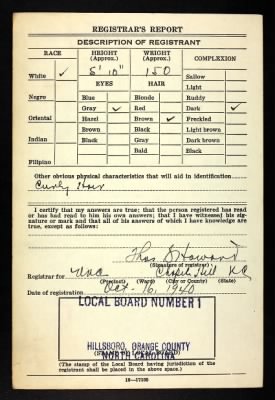 REGISTRAR'S REPORT
DESCRIPTION OF REGISTRANT
RACE HEIGHT (Approx.) WEIGHT (Approx.) COMPLEXION
White ✓ 5' 10" 150 Sallow
EYES HAIR Light
Negro Blue Blonde Ruddy
Gray ✓ Red Dark ✓
Oriental Hazel Brown ✓ Freckled
Brown Black Light brown
Indian Black Gray Dark brown
Bald Black
Filipino
Other obvious physical characteristics that will aid in identification
Curly Hair
I certify that my answers are true; that the person registered has read or has had read to him his own answers; that I have witnessed his signature or mark and that all of his answers of which I have knowledge are true, except as follows:
Howard
(Signature of registrar)
Registrar for UNC Chapel Hill N.C.
(Precinct) (Ward) (City or County) (State)
Date of registration Oct. 16, 1940
LOCAL BOARD NUMBER 1
HILLSBORO, ORANGE COUNTY
NORTH CAROLINA
(The stamp of the Local Board having jurisdiction of the registrant shall be placed in the above space.)